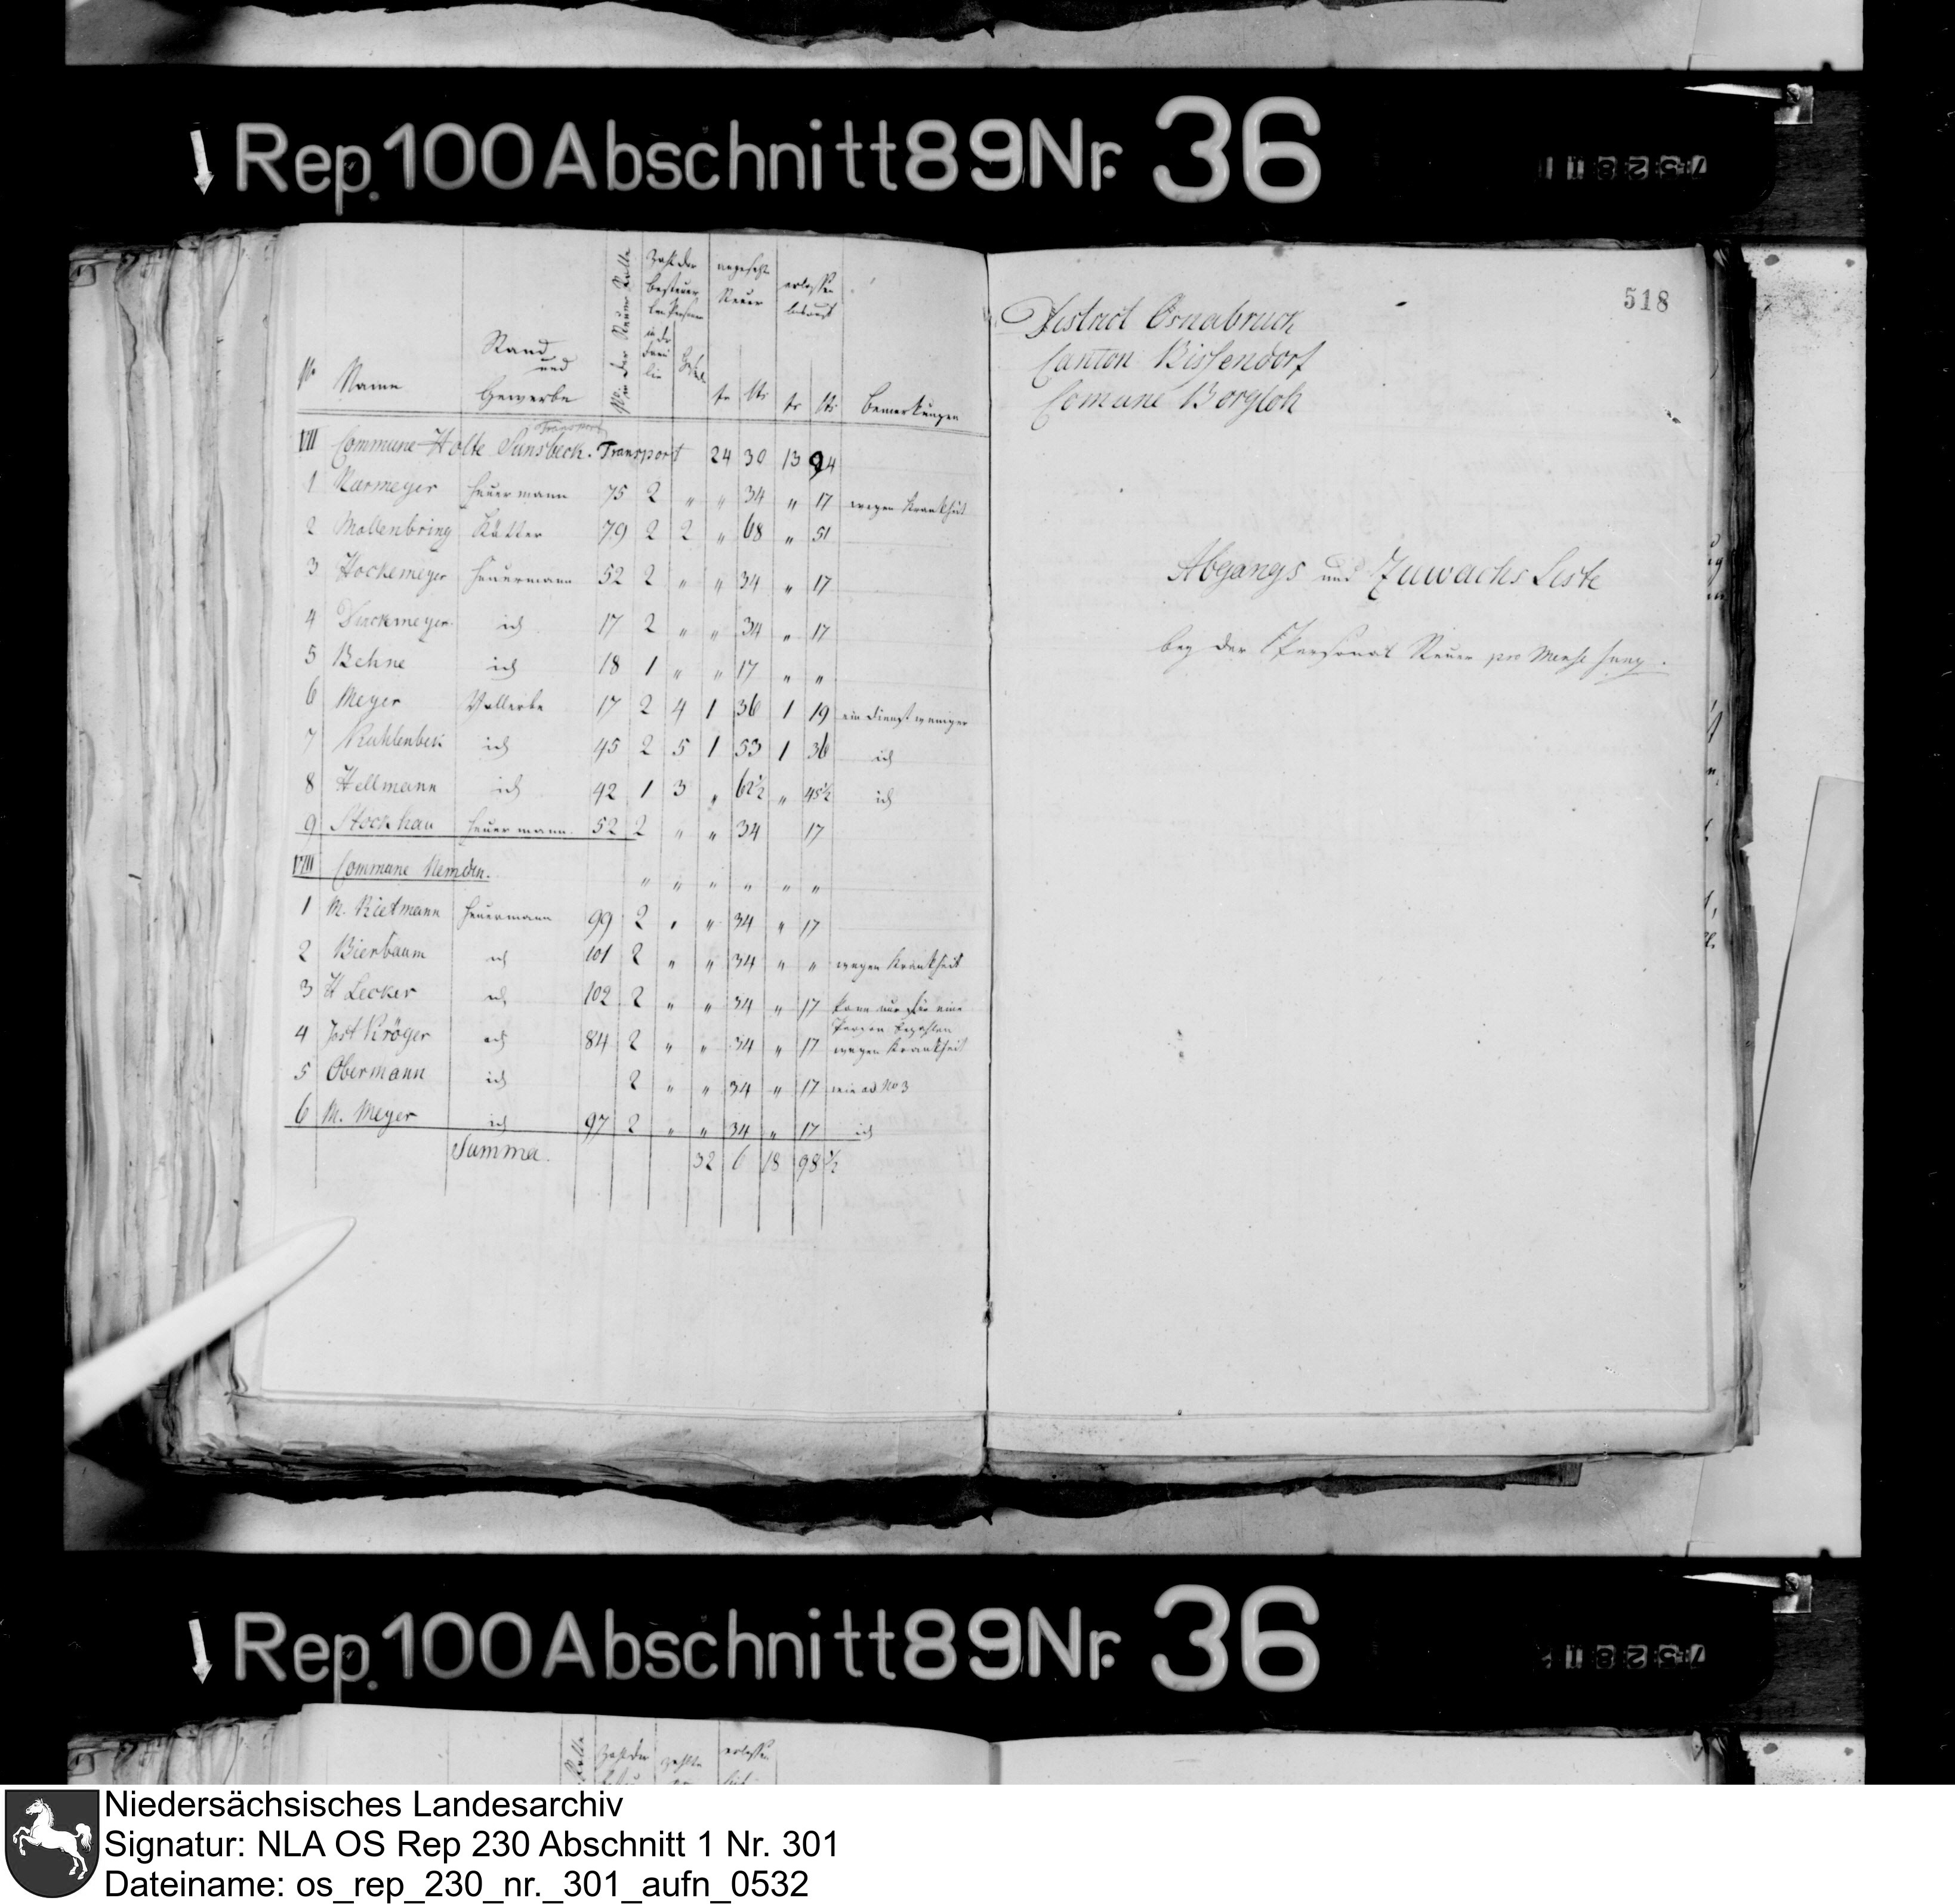 Rep. 100 Abschnitt 89 Nr. 36
No Name Stand und Gewerbe No in der Steuer Rolle Zahl der besteuerten Personen in der Familie angesetzte Steuer erlassen fr Cts fr Cts Bemerkungen
Transport
VII Commune Holte Sunsbeck. Transport 24 30 13 94
1 Narmeyer Heuermann 75 2 " " 34 " 17 wegen Krankheit
2 Mollenbring Kötter 79 2 2 " 68 " 51
3 Hockemeyer Heuermann 52 2 " " 34 " 17
4 Dieckmeyer id 17 2 " " 34 " 17
5 Behne id 18 1 " " 17 " "
6 Meyer Vollerbe 17 2 4 1 36 1 19 ein Dienst weniger
7 id 45 2 5 1 53 1 36 id
8 Hellmann id 42 1 3 " 62½ " 45½ id
9 Stockhau Heuermann 52 2 " " 34 17
VIII Commune Nemden. " " " " " "
1 M. Rietmann Heuermann 99 2 " " 34 " 17
2 Bierbaum id 101 2 " " 34 " " wegen Krankheit
3 H Lecker id 102 2 " " 34 " 17 kann nur für eine
Person bezahlen
4 Jost Kröger id 84 2 " " 34 " 17 wegen Krankheit
5 Obermann id 2 " " 34 " 17 wie ad No 3
6 M. Meyer id 97 2 " " 34 " 17 id
Summa. 32 6 18 98½
518
District Osnabruck
Canton Bissendorf
Comune Borgloh
Abgangs und Zuwachs Liste
bey der Personal Steuer pro Mense Juny.
Rep. 100 Abschnitt 89 Nr. 36
Niedersächsisches Landesarchiv
Signatur: NLA OS Rep 230 Abschnitt 1 Nr. 301
Dateiname: os_rep_230_nr._301_aufn_0532